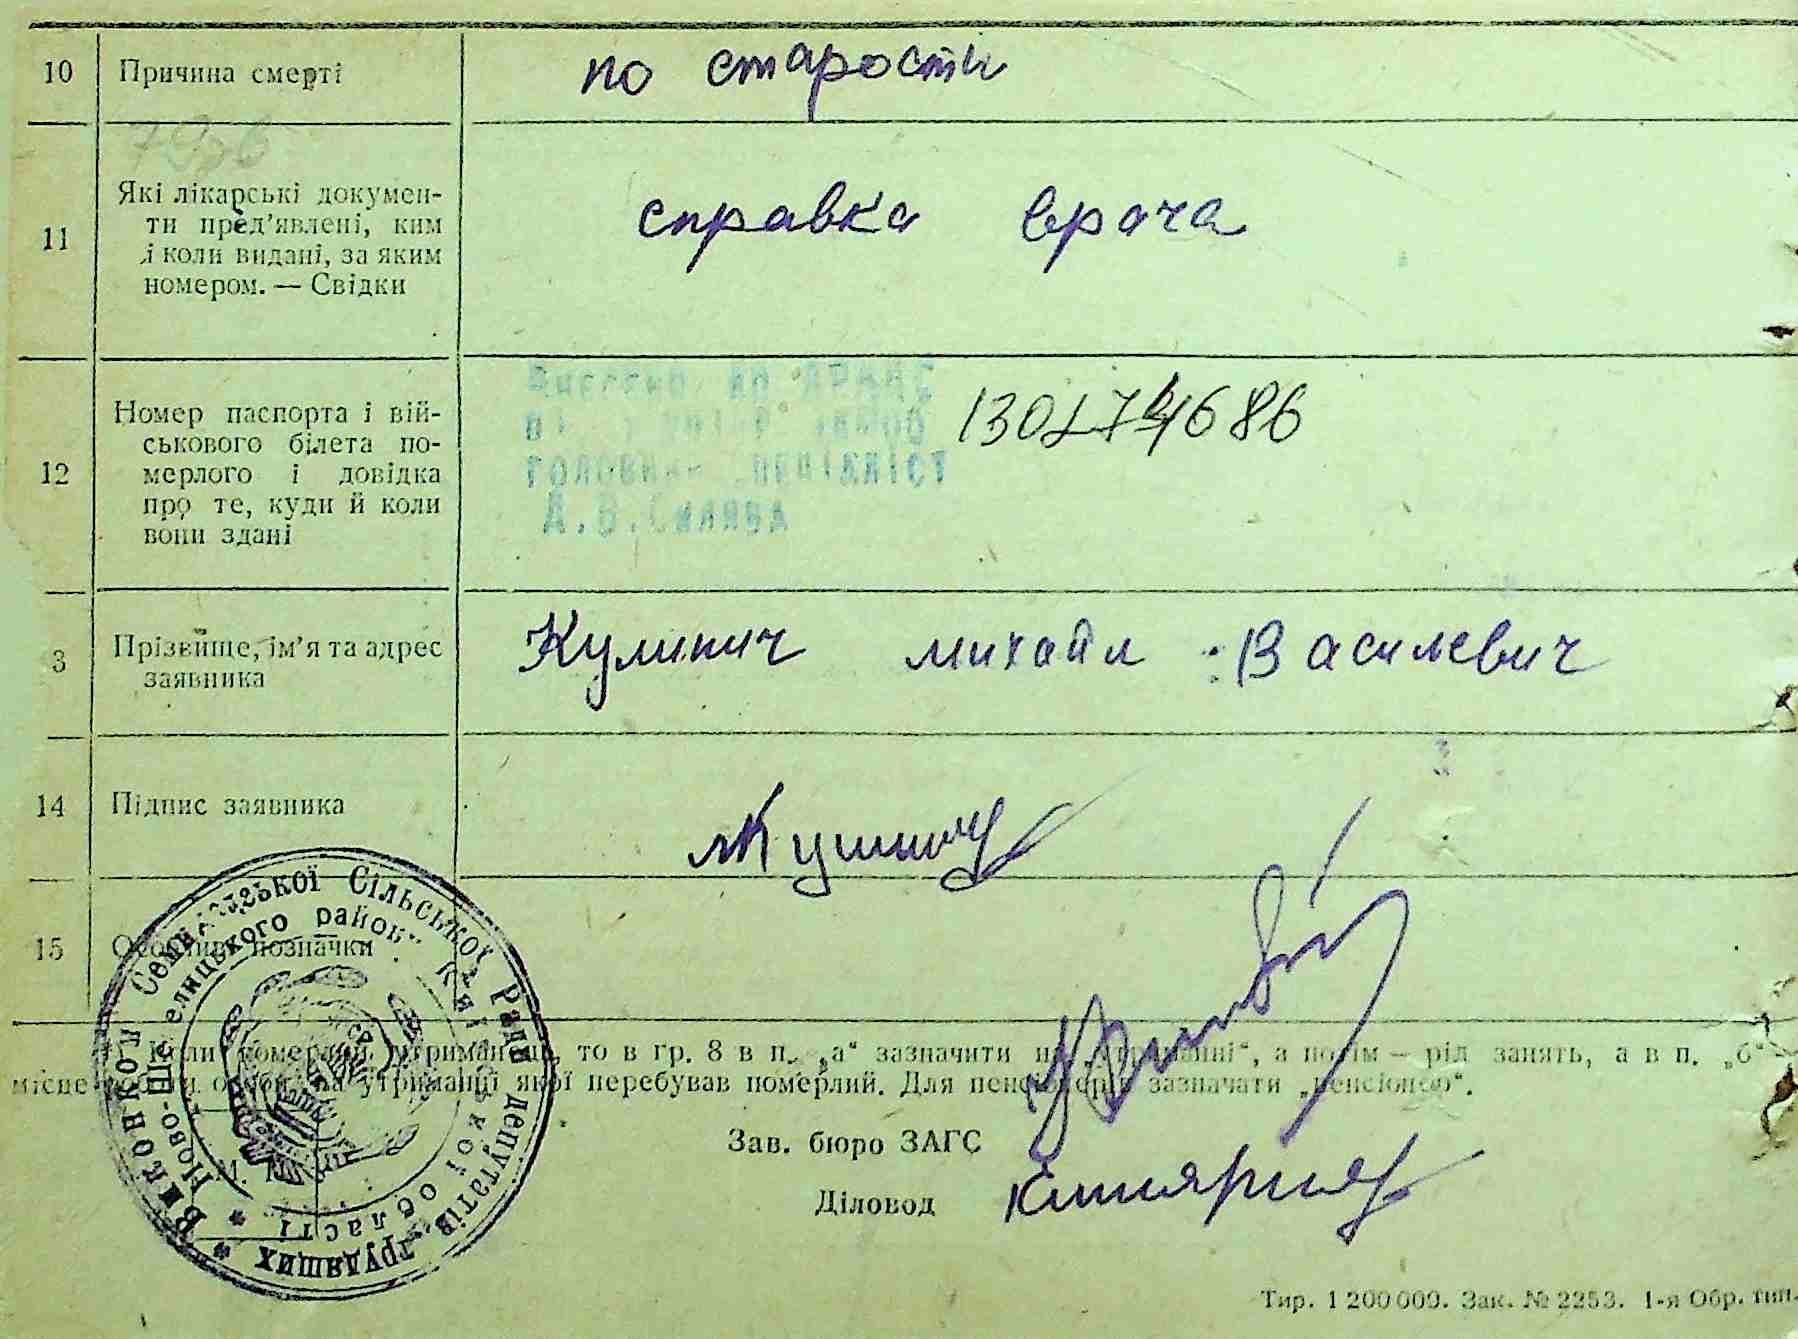 10 Причина смерті по старости
Які лікарські докумен-
ти пред'явлені, ким
і коли видані, за яким
номером. — Свідки
11 справка врача
Номер паспорта і вій-
ськового білета по-
мерлого і довідка
про те, куди й коли
вони здані
12
головний спеціаліст
А.В.
3 Прізвище, ім'я та адрес
заявника
Кулинич михайл Василевич
14 Підпис заявника
15 Особливі позначки
Коли померлий утриманець, то в гр. 8 в п. „а“ зазначити на „утриманні“, а потім — рід занять, а в п. „б“ —
місце роботи особи, на утриманні якої перебував померлий. Для пенсіонерів зазначати „пенсіонер“.
Зав. бюро ЗАГС
Діловод
М. П.
Виконком Семиполицької Сільської Ради депутатів трудящих
Ново-Шепелицького району Київської області
Тир. 1 200 000. Зак. № 2253. 1-я Обр. тип.